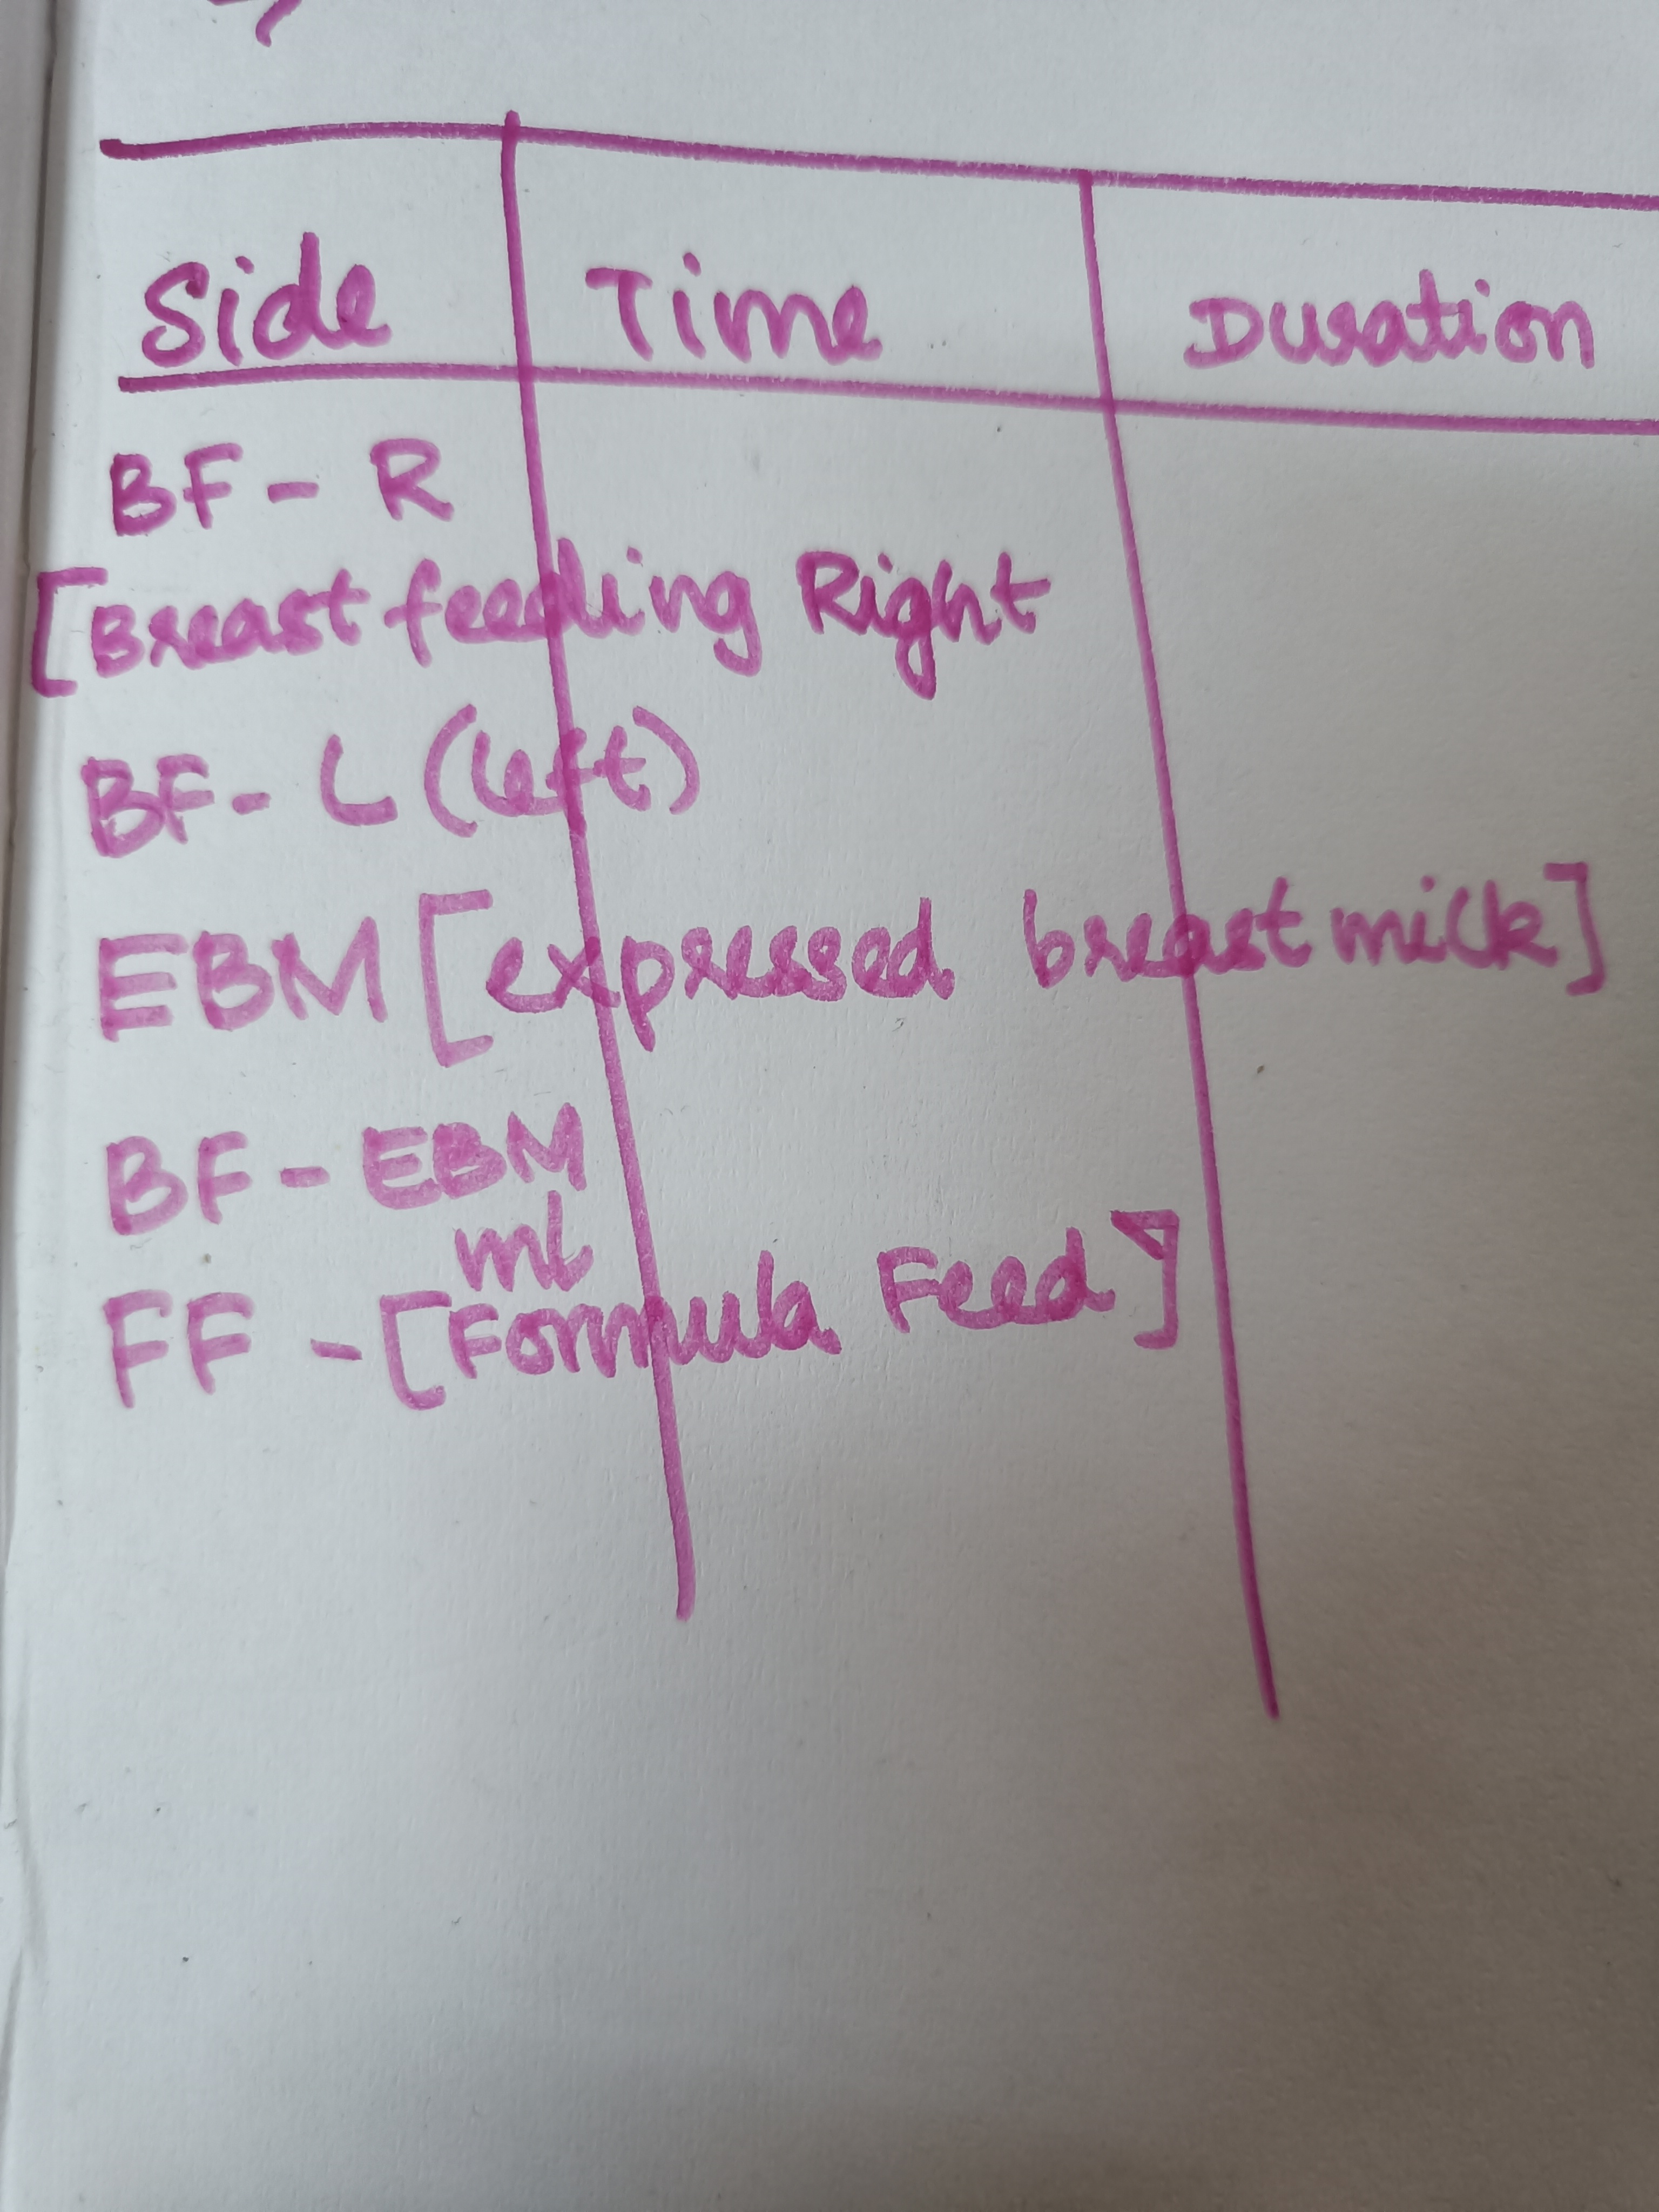 Side Time Duration
BF - R
[Breast feeding Right
BF - L (left)
EBM [expressed breast milk]
BF - EBM
ml
FF - [Formula Feed]